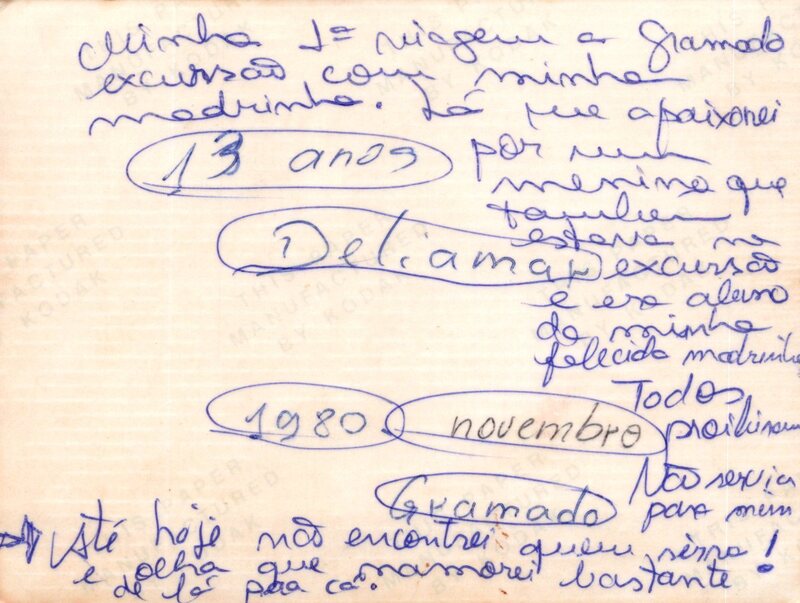 Minha 1ª viagem a Gramado
excursão com minha
madrinha. Lá me apaixonei
por um
menino que
também
estava na
excursão
e era aluno
da minha
falecida madrinha
Todos
proibiram
Não servia
para mim
13 anos
Deliamar
1980
novembro
Gramado
Até hoje não encontrei quem sirva!
e olha que namorei bastante!
de lá pra cá.
THIS PAPER
MANUFACTURED
BY KODAK